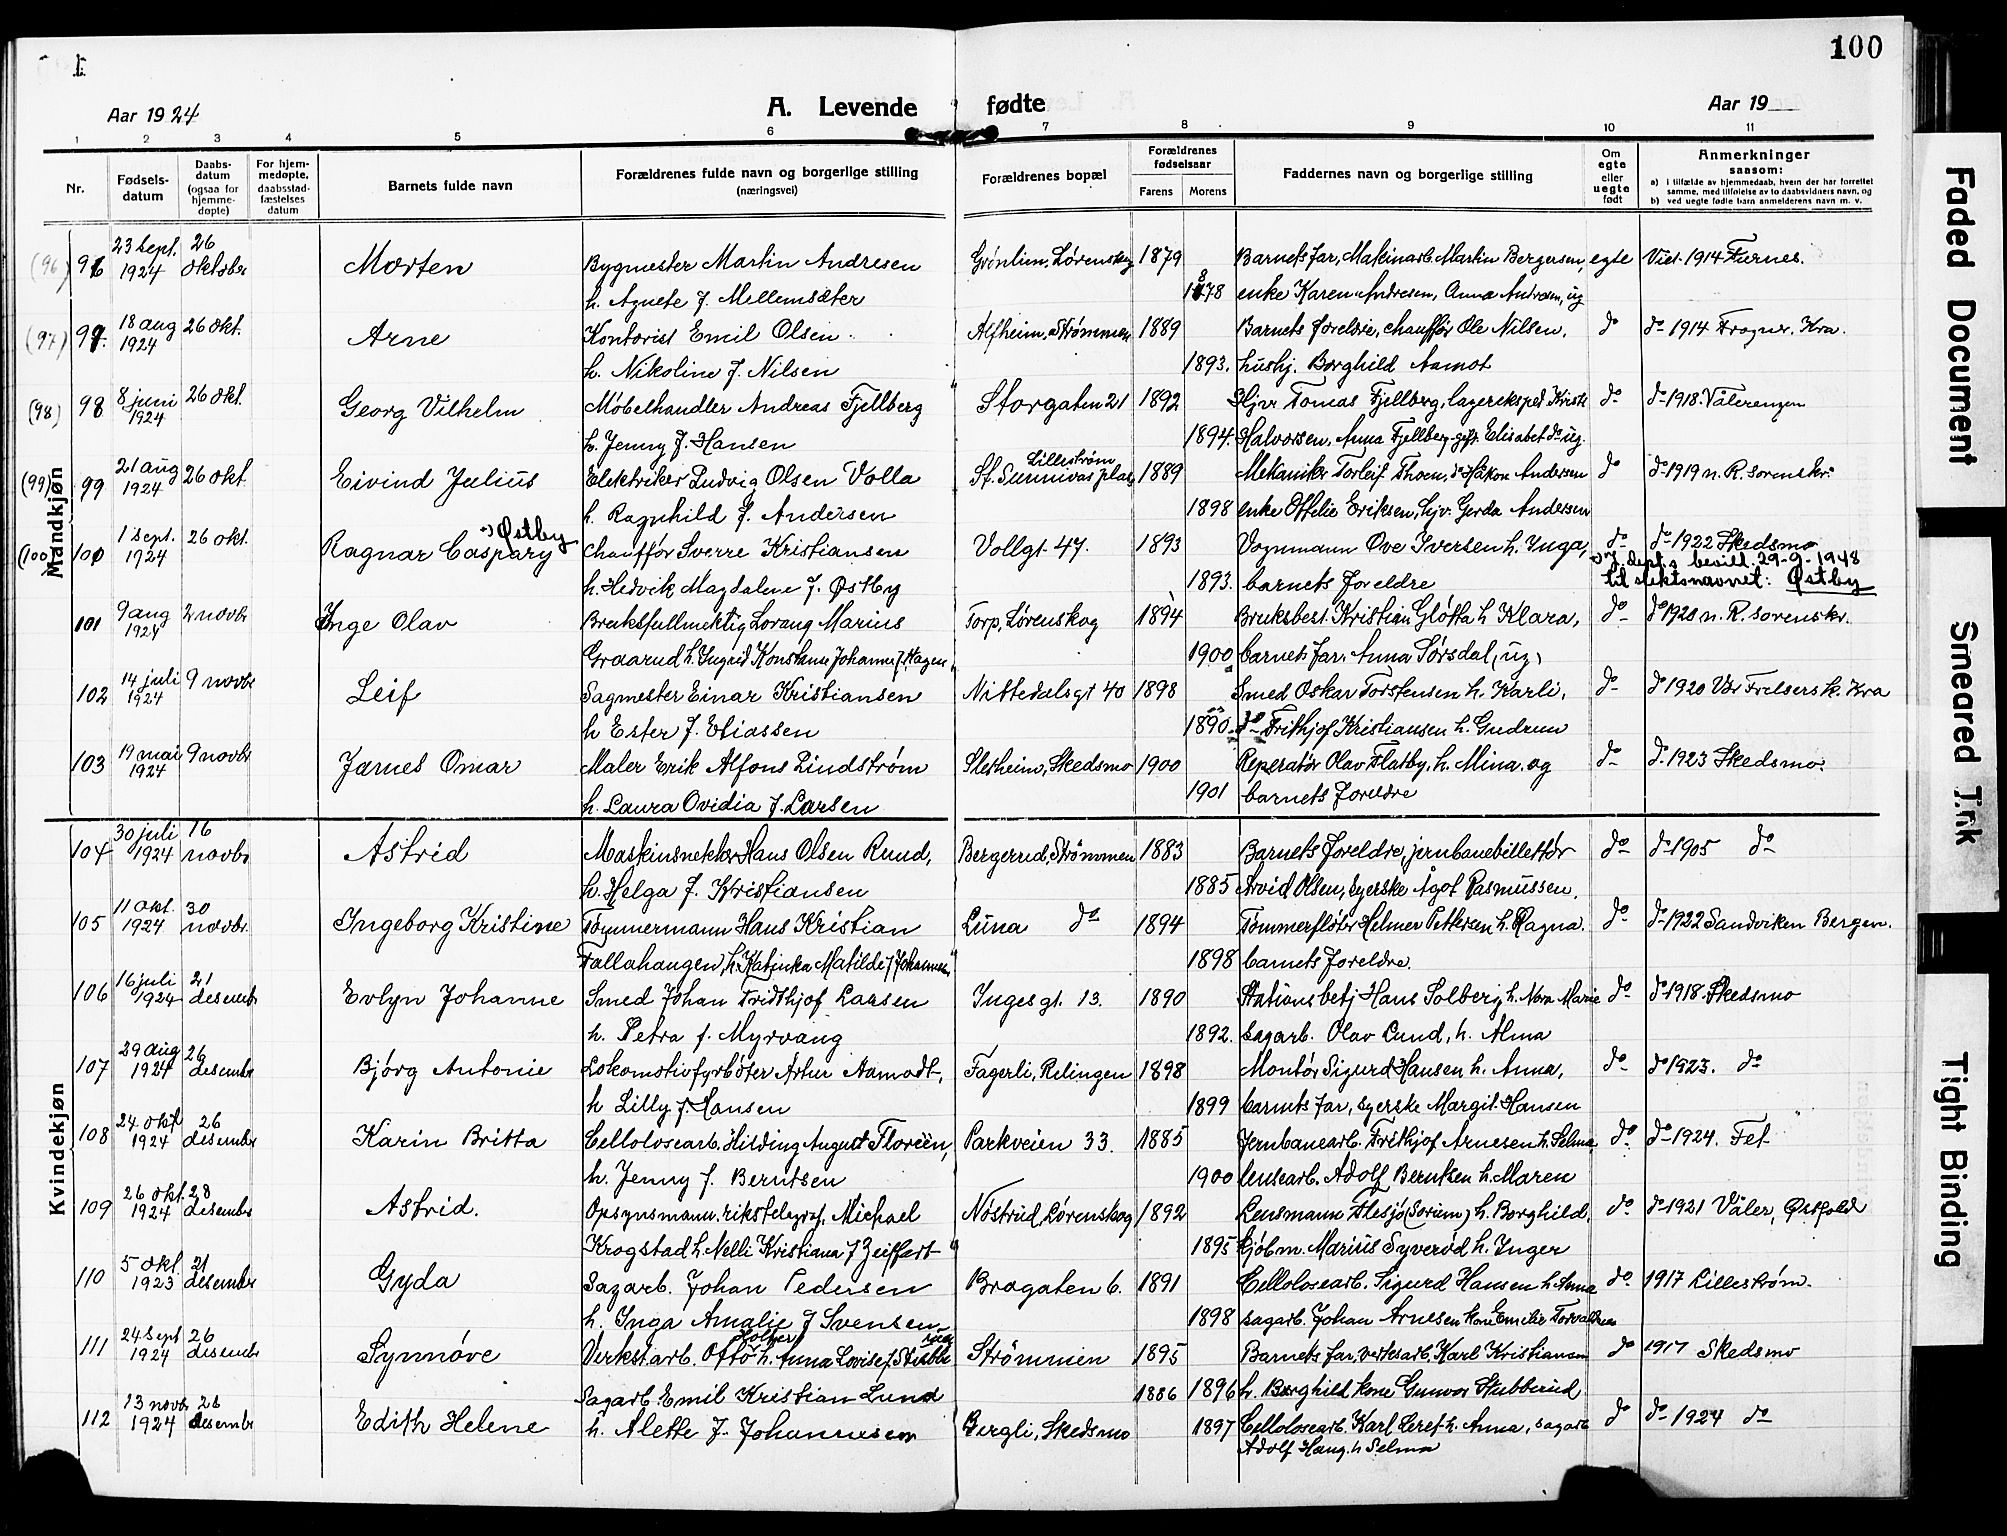 100
Aar 1924
A. Levende fødte
Aar 19
1 2 3 4 5 6 7 8 9 10 11
Nr.
Fødsels-datum
Daabs-datum (ogsaa for hjemme-døpte)
For hjem-medøpte, daabsstad-fæstelses datum
Barnets fulde navn
Forældrenes fulde navn og borgerlige stilling (næringsvei)
Forældrenes bopæl
Forældrenes fødselsaar
Farens Morens
Faddernes navn og borgerlige stilling
Om egte eller uegte født
Anmerkninger saasom:
a) i tilfælde av hjemmedaab, hvem der har forrettet samme, med tilføielse av to daabsvidners navn, og
b) ved uegte fødte barn anmelderens navn m. v.
Mandkjøn
(96) 96 23 sept. 1924 26 oktobr Morten Bygmester Martin Andresen Grönlim, Lørenskog 1879 Barnets far, Maskinarb. Martin Bergersen, egte Viet 1914 Furnes.
h. Agnete f. Mellemsæter 1878 enke Karen Andresen, Anna Andresen, ug
(97) 97. 18 aug 1924 26 okt. Arne Kontorist Emil Olsen Alfheim, Strømmen 1889 Barnets foreldre, chauffør Ole Nilsen, do do 1914 Frogner. Kra.
h. Nikoline f. Nilsen 1893. hushj. Borghild Aamot
(98) 98 8 juni 1924 26 okt. Georg Vilhelm Møbelhandler Andreas Fjellberg Storgaten 21 1892 Hjvr Tomas Fjellberg, lagereksped. Kristi do do 1918. Vålerengen
h. Jenny f. Hansen 1894. Halvorsen, Anna Fjellberg gift, Elisabet do ug.
(99) 99 21 aug 1924 26 okt. Eivind Julius Elektriker Ludvig Olsen Volla St. Sunnivas plas Lillestrøm 1889 Mekaniker Torleif Thoen, do Håkon Andersen do do 1919 n. R. sorenskr.
h. Ragnhild f. Andersen 1898 enke Ottilie Eriksen, hjv. Gerda Andersen
(100) 100 1 sept. 1924 26 okt. Ragnar Caspary Østby chauffør Sverre Kristiansen Vollgt. 47. 1893 Vognmann Ove Iversen h. Inga, do do 1922 Skedsmo
h. Hedvik Magdalene f. Østby 1893. barnets foreldre j. dept.s bevill. 29-9-1948 til slektsnavnet: Østby
101 9 aug 1924 2 novbr Inge Olav Bruksfullmektig Lorang Marius Torp, Lørenskog 1894 Bruksbest. Kristian Gløtta h Klara, do do 1920 n. R. sorenskr.
Graarud h. Ingrid Konstanse Johanne f. Hagen 1900 barnets far. Anna Sørsdal, ug.
102 14 juli 1924 9 novbr Leif Sagmester Einar Kristiansen Nittedalsgt 40 1898 Smed Oskar Torstensen h. Karli, do do 1920 Vår Frelsers k. Kra
h Ester f. Eliassen 1890. do Frithjof Kristiansen h. Gudrun
103 19 mai 1924 9 novbr James Omar Maler Erik Alfons Lindstrøm Sletheim, Skedsmo 1900 Reperatør Olav Flatby, h. Mina, og do do 1923 Skedsmo.
h. Laura Ovidia f. Larsen 1901 barnets foreldre
Kvindekjøn
104 30 juli 1924 16 novbr Astrid Maskinsnekker Hans Olsen Ruud, Bergerud, Strømmen 1883 Barnets foreldre, jernbanebillettør do do 1905 do
h. Helga f. Kristiansen 1885 Arvid Olsen, syerske Ågot Rasmussen.
105 11 okt. 1924 30 novbr. Ingeborg Kristine Tømmermann Hans Kristian Luna do 1894 Tømmerfløter Helmer Pettersen h. Ragna. do do 1922 Sandviken Bergen.
Fallahaugen, h. Katinka Matilde f. Johannesen 1898 barnets foreldre.
106 16 juli 1924 21 desembr Evlyn Johanne Smed Johan Fridthjof Larsen Inges gt. 13. 1890 Stationsbetj Hans Solberg, h. Nora Marie do do 1918. Skedsmo
h. Petra f. Myrvang 1892. sagarb. Olav Lund, h. Alma
107 29 aug 1924 26 desembr Bjørg Antonie Lokomotivfyrbøter Artur Aamodt, Fagerli, Relingen 1898 Montør Sigurd Hansen h. Anna, do do 1923. do
h Lilly f. Hansen 1899 barnets far, syerske Margit Hansen
108 24 okt 1924 26 desembr Karin Britta Cellolosearb. Hilding August Floreèn, Parkveien 33. 1885 Jernbanearb. Frithjof Arnesen h. Selma, do do 1924. Fet
h. Jenny f. Berntsen 1900 lensearb. Adolf Berntsen h. Maren
109 26 okt. 1924 28 desembr Astrid. Opsynsmann, rikstelegraf, Michael Nöstrud, Lørenskog 1892 Lensmann Flesjø (Sørum) h. Borghild. do do 1921 Våler, Østfold
Krogstad h. Nelli Kristiana f Zeiffert 1895 kjöbm. Marius Syverød h. Inger
110 5 okt. 1923 21 desembr Gyda Sagarb. Johan Pedersen Bragaten 6. 1891 Cellolosearb. Sigurd Hansen h Anna do 1917 Lillestrøm.
h. Inga Amalie f Svensen 1898 sagarb. Johan Arnesen
111 24 sept 1924 26 desembr Synnøve Verkstarb. Otto Holter h. Anna Lovise f. Stubberud Strømmen 1895 Barnets far, verksarb. Karl Kristiansen do 1917 Skedsmo
Sagarb. Emil Kristian Lund 1886 1896 h. Borghild kone Gunvor Stubberud
112 13 novbr 1924 28 desembr Edith Helene h. Alette f. Johannesen Bergli, Skedsmo 1897 Cellolosearb. Karl h. Anna, sagarb do do 1924 do
Adolf Haug. h Selma
Faded Document
Smeared Ink
Tight Binding